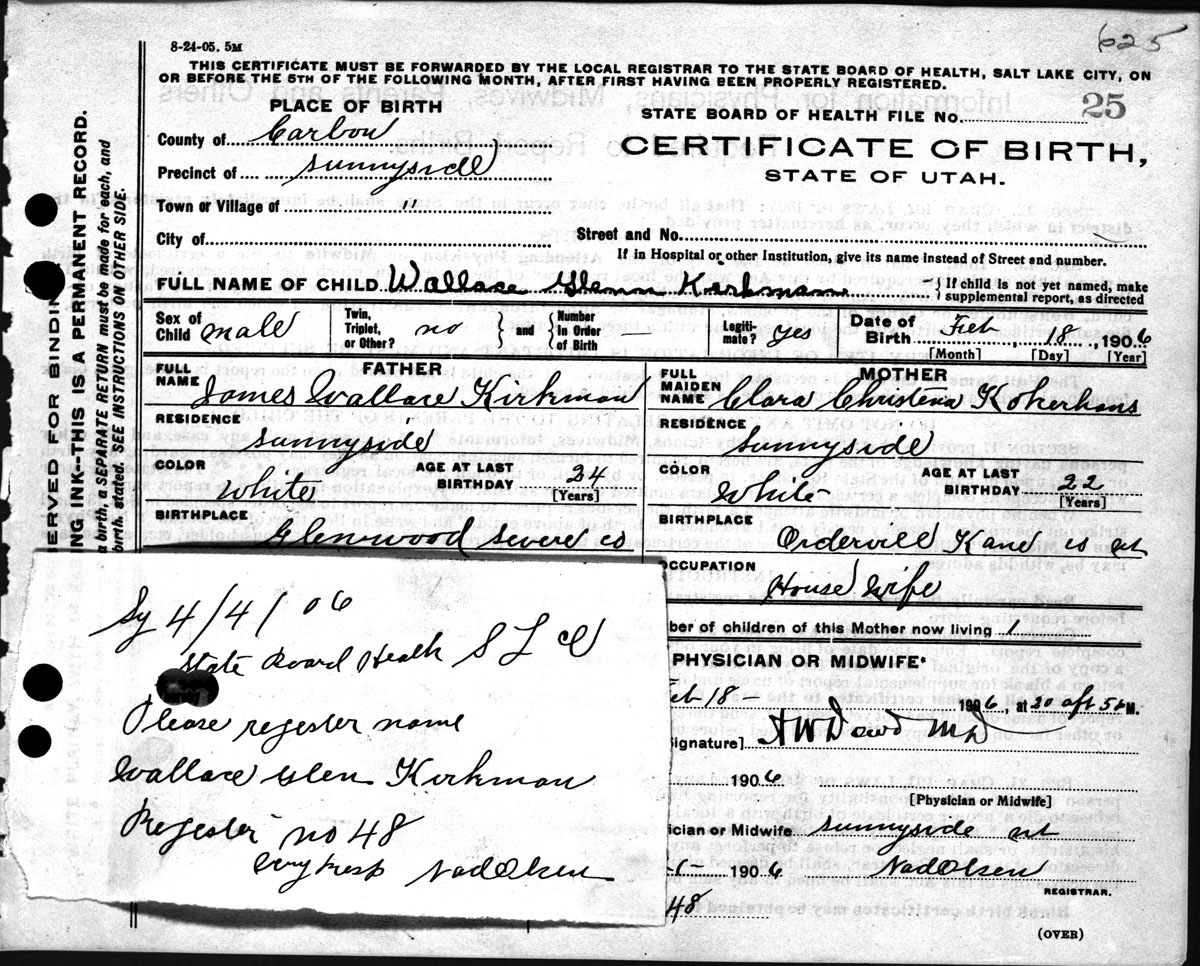 625
8-24-05. 5M
THIS CERTIFICATE MUST BE FORWARDED BY THE LOCAL REGISTRAR TO THE STATE BOARD OF HEALTH, SALT LAKE CITY, ON
OR BEFORE THE 5TH OF THE FOLLOWING MONTH, AFTER FIRST HAVING BEEN PROPERLY REGISTERED.
PLACE OF BIRTH
STATE BOARD OF HEALTH FILE No. 25
County of Carbon
CERTIFICATE OF BIRTH,
Precinct of Sunnyside
STATE OF UTAH.
Town or Village of "
City of
Street and No. —
If in Hospital or other Institution, give its name instead of Street and number.
FULL NAME OF CHILD Wallace Glenn Kirkman { If child is not yet named, make
supplemental report, as directed
Sex of Child male Twin, Triplet, or Other? no } and { Number In Order of Birth — Legiti-mate? yes Date of Birth Feb 18, 1906
[Month] [Day] [Year]
FATHER
FULL NAME James Wallace Kirkman
RESIDENCE
Sunnyside
COLOR White AGE AT LAST BIRTHDAY 24
[Years]
BIRTHPLACE
Glenwood Severe co
MOTHER
FULL MAIDEN NAME Clara Christena Kokerhans
RESIDENCE
Sunnyside
COLOR White AGE AT LAST BIRTHDAY 22
[Years]
BIRTHPLACE
Ordervill Kane co ut
OCCUPATION
House Wife
ber of children of this Mother now living 1
PHYSICIAN OR MIDWIFE
eb 18 – 1906, at 20 aft 5 M.
ignature] AWDowd MD
1906
[Physician or Midwife]
ician or Midwife Sunnyside ut
-1- 1906 NadOlsen
REGISTRAR.
48
(OVER)
Sy 4/4/06
State Board Health S L C
Please regester name
Wallace Glen Kirkman
Regester no 48
Very Resp NadOlsen
SERVED FOR BINDIN
ING INK--THIS IS A PERMANENT RECORD.
a birth, a SEPARATE RETURN must be made for each, and
birth stated. SEE INSTRUCTIONS ON OTHER SIDE.